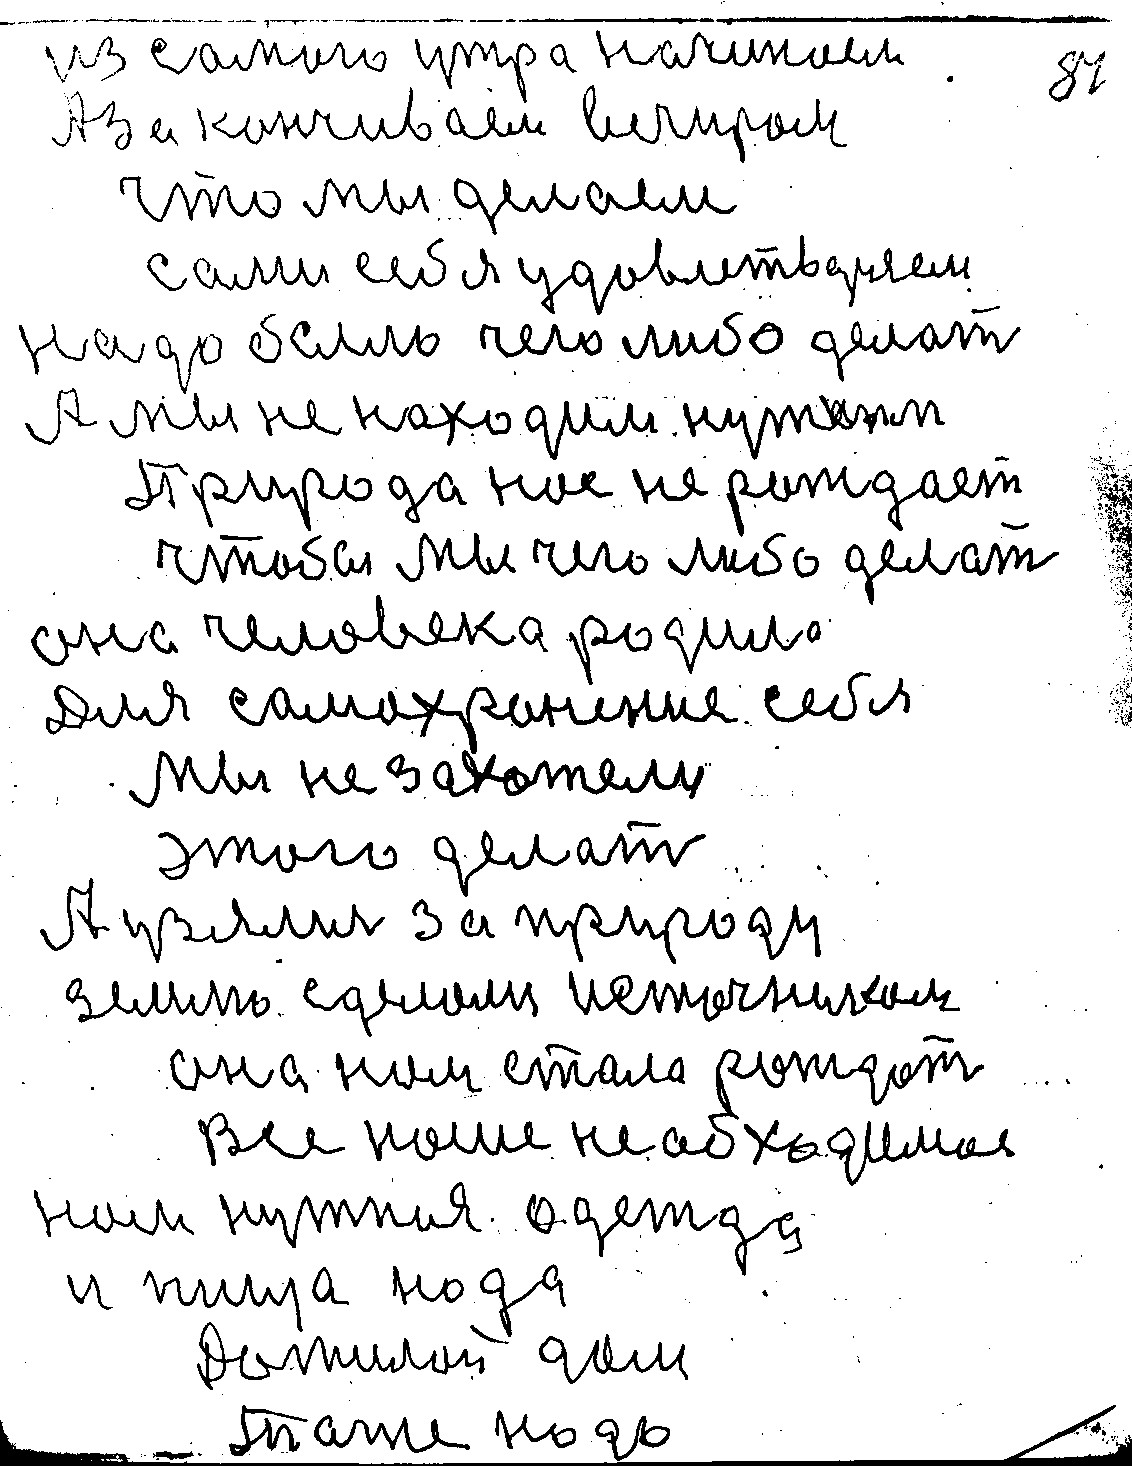 из самого утра начинаем
81
А заканчиваем вечиром
что мы делаем
сами себя удовлетваряем
надо былло чего либо делат
А мы не находим нужным
Природа нас не рождает
чтобы мы чего либо делат
она человека родила
Для самохронение себя
мы не захотели
этого делат
А узялись за природу
землю сделали источником
она нам стала рождат
Все наше необходимое
нам нужная одежда
и пища нада
Да жилой дом
Таже надо